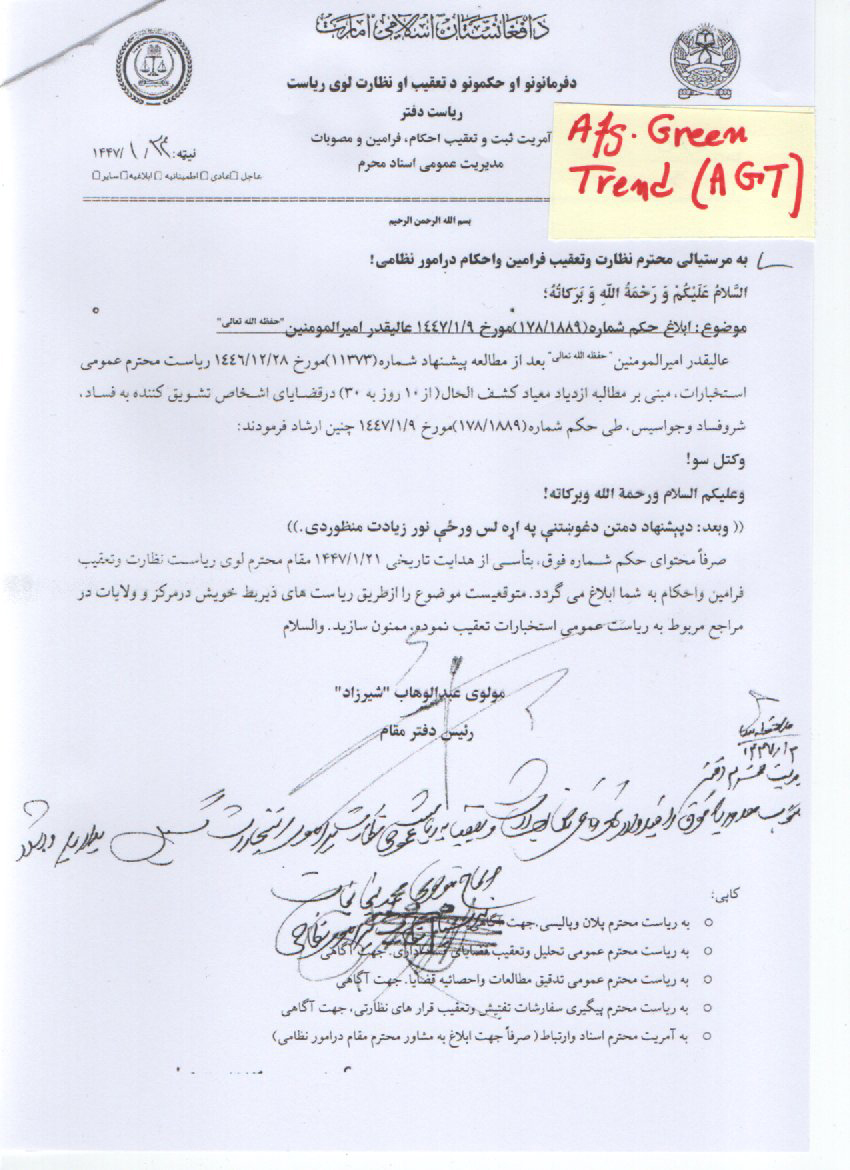 دافغانستان اسلامي امارت
دفرمانونو او حکمونو د تعقیب او نظارت لوی ریاست
ریاست دفتر
آمریت ثبت و تعقیب احکام، فرامین و مصوبات
مدیریت عمومی اسناد محرم
نیټه: /۱/۱۴۴۷
عاجل□ عادی□ اطمینانیه □ ابلاغیه□ سایر□
Afg. Green
Trend (AGT)
بسم الله الرحمن الرحیم
به مرستیالی محترم نظارت وتعقیب فرامین واحکام درامور نظامی!
السَّلامُ عَلَیْکُمْ وَ رَحْمَةُ اللّهِ وَ بَرَکاتُهُ؛
موضوع: ابلاغ حکم شماره(۱۷۸/۱۸۸۹)مورخ ۱۴۴۷/۱/۹ عالیقدر امیرالمومنین"حفظه الله تعالی"
عالیقدر امیرالمومنین"حفظه الله تعالی" بعد از مطالعه پیشنهاد شماره(۱۱۳۷۳)مورخ ۱۴۴۶/۱۲/۲۸ ریاست محترم عمومی
استخبارات، مبنی بر مطالبه ازدیاد معیاد کشف الحال(از ۱۰ روز به ۳۰) درقضایای اشخاص تشویق کننده به فساد،
شروفساد وجواسیس، طی حکم شماره(۱۷۸/۱۸۸۹)مورخ ۱۴۴۷/۱/۹ چنین ارشاد فرمودند:
وکتل سو!
وعلیکم السلام ورحمة الله وبرکاته!
(( وبعد: دپېشنهاد دمتن دغوښتنې په اړه لس ورځې نور زیادت منظوردی.))
صرفاً محتوای حکم شماره فوق، بتأسی از هدایت تاریخی ۱۴۴۷/۱/۲۱ مقام محترم لوی ریاست نظارت وتعقیب
فرامین واحکام به شما ابلاغ می گردد. متوقعیست موضوع را ازطریق ریاست های ذیربط خویش درمرکز و ولایات در
مراجع مربوط به ریاست عمومی استخبارات تعقیب نموده، ممنون سازید. والسلام
مولوی عبدالوهاب "شیرزاد"
رئیس دفتر مقام
کاپی:
به ریاست محترم پلان وپالیسی. جهت
به ریاست محترم عمومی تحلیل وتعقیب قضایای جهت آگاهی
به ریاست محترم عمومی تدقیق مطالعات واحصائیه قضایا. جهت آگاهی
به ریاست محترم پیگیری سفارشات تفتیش وتعقیب قرار های نظارتی، جهت آگاهی
به آمریت محترم اسناد وارتباط( صرفاً جهت ابلاغ به مشاور محترم مقام درامور نظامی)